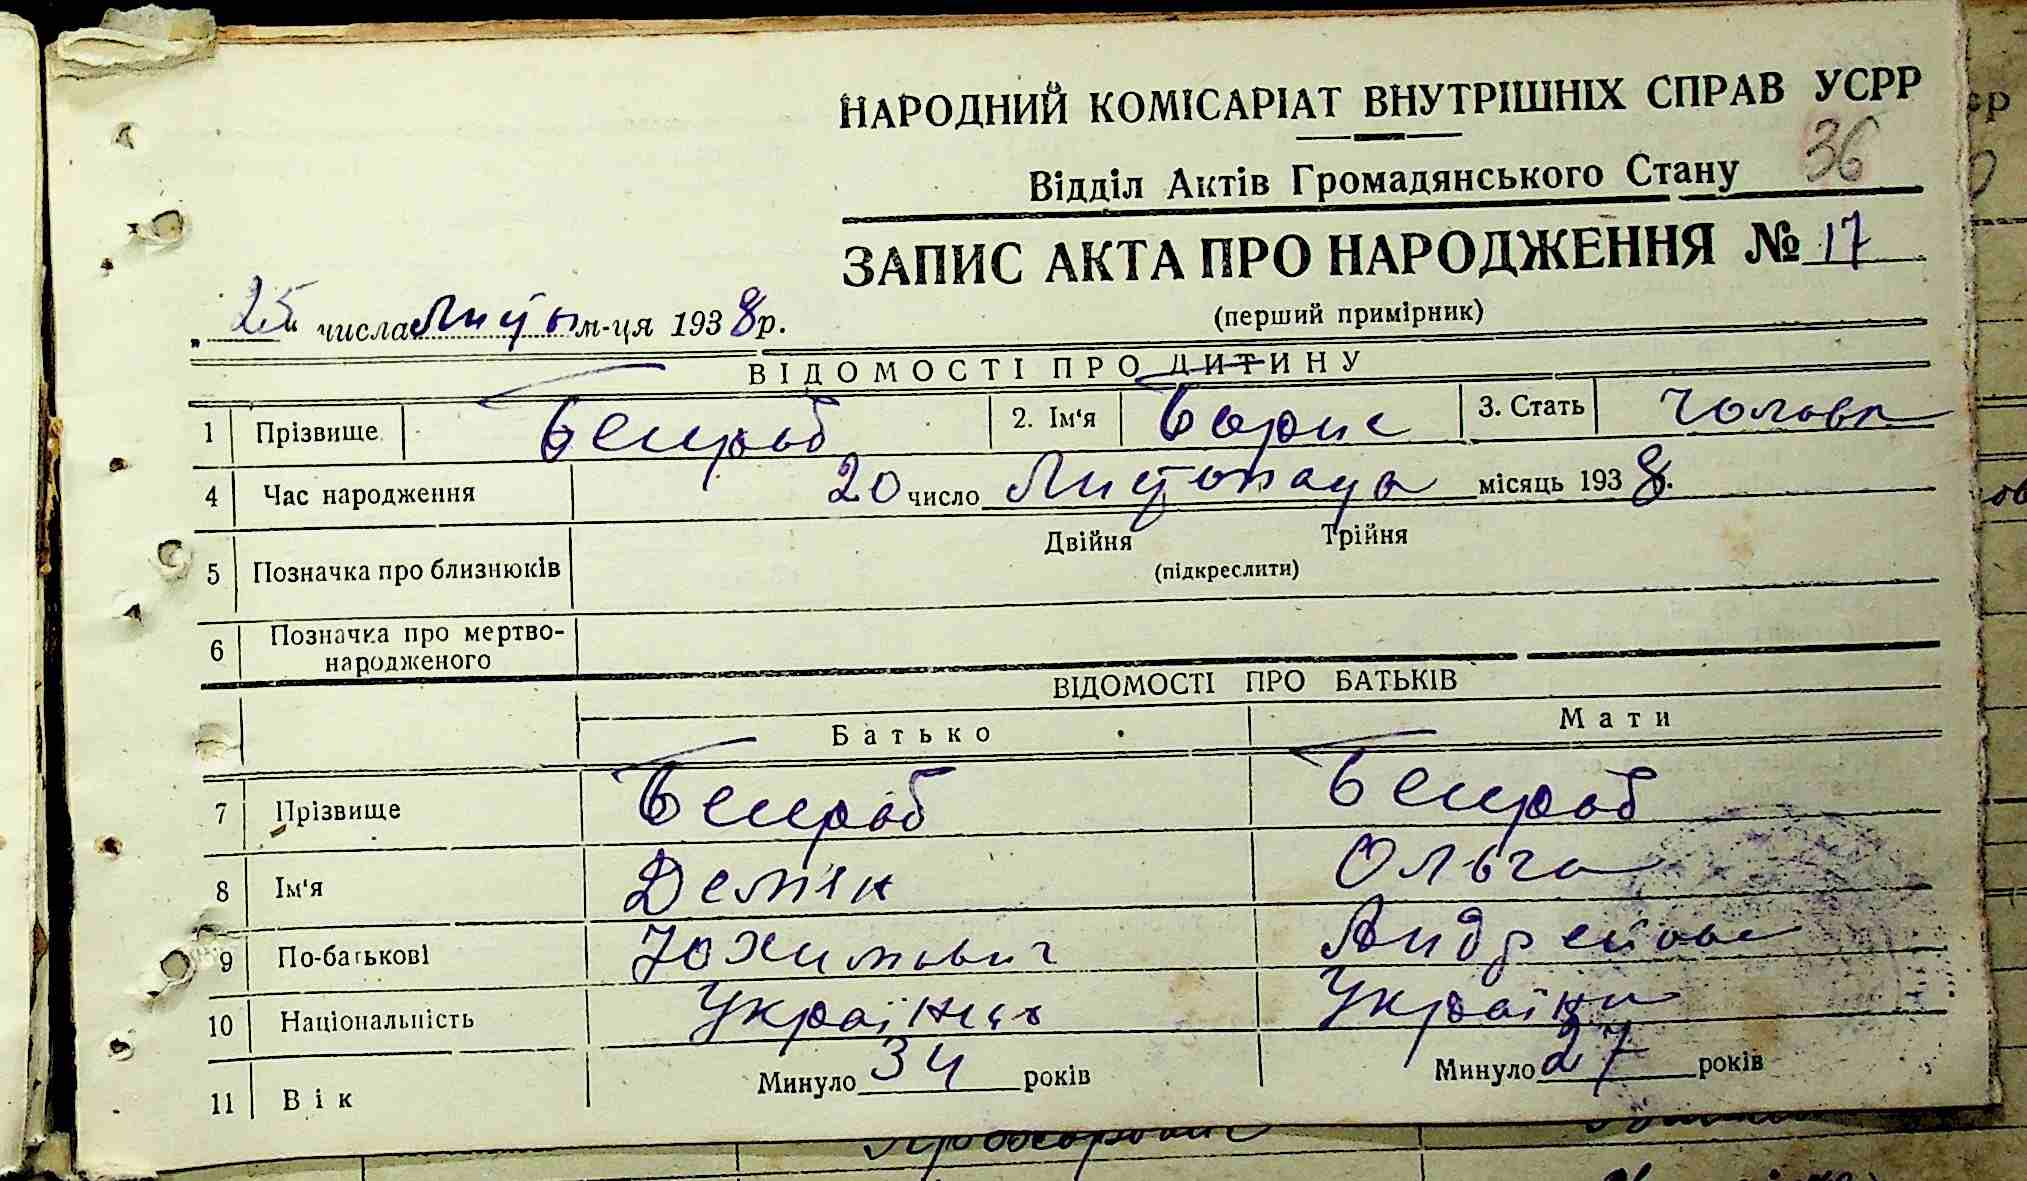 НАРОДНИЙ КОМІСАРІАТ ВНУТРІШНІХ СПРАВ УСРР
36
Відділ Актів Громадянського Стану
ЗАПИС АКТА ПРО НАРОДЖЕННЯ № 17
(перший примірник)
„25" числа м-ця 1938 р.
ВІДОМОСТІ ПРО ДИТИНУ
1 Прізвище 2. Ім'я Борис 3. Стать Чоловк
4 Час народження 20 число Листопада місяць 1938.
5 Позначка про близнюків Двійня Трійня
(підкреслити)
6 Позначка про мертво-
народженого
ВІДОМОСТІ ПРО БАТЬКІВ
Батько Мати
7 Прізвище
8 Ім'я Демян Ольга
9 По-батькові Юхимович
10 Національність Українць Україн
11 Вік Минуло 34 років Минуло 27 років